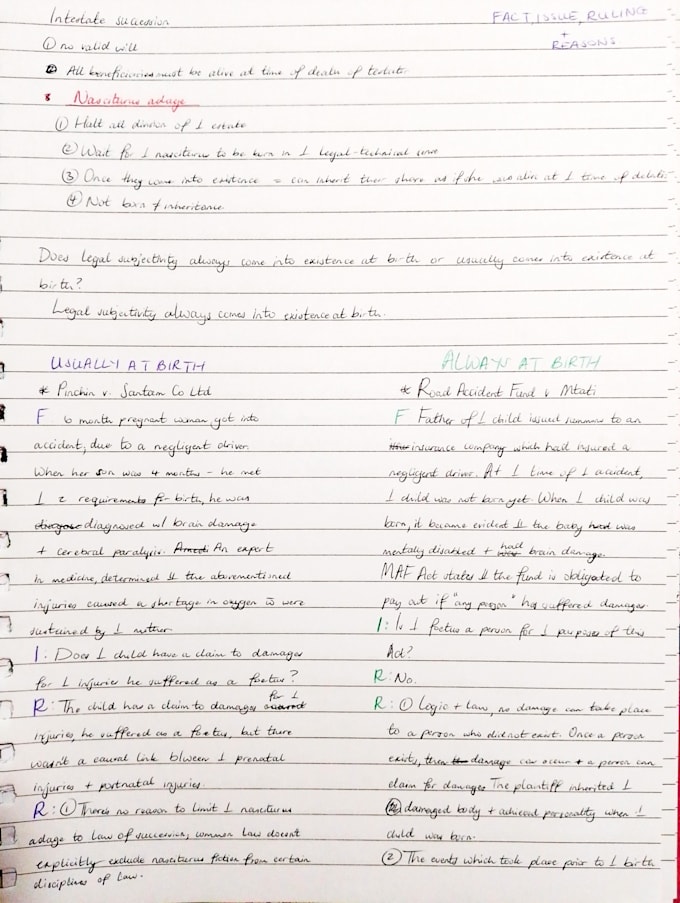 Intestate succession
FACT, ISSUE, RULING
+
REASONS
① no valid will
② All beneficiaries must be alive at time of death of testator
* Nasciturus adage
① Halt all division of ⊥ estate
② Wait for ⊥ nasciturus to be born in ⊥ legal-technical sense
③ Once they come into existence = can inherit their share as if she was alive at ⊥ time of delatio
④ Not born ≠ inheritance
Does legal subjectivity always come into existence at birth or usually comes into existence at
birth?
Legal subjectivity always comes into existence at birth.
USUALLY AT BIRTH
* Pinchin v. Santam Co Ltd
F 6 month pregnant woman got into
accident, due to a negligent driver.
When her son was 4 months - he met
⊥ 2 requirements for birth, he was
diagnosed w/ brain damage
+ cerebral paralysis. An expert
in medicine, determined the aforementioned
injuries caused a shortage in oxygen were
sustained by ⊥ mother
I: Does ⊥ child have a claim to damages
for ⊥ injuries he suffered as a foetus?
R: The child has a claim to damages for ⊥
injuries, he suffered as a foetus, but there
wasn't a causal link b/ween ⊥ prenatal
injuries + postnatal injuries.
R: ① There's no reason to limit ⊥ nasciturus
adage to law of succession, common law doesn't
explicitly exclude nasciturus fiction from certain
disciplines of law.
ALWAYS AT BIRTH
* Road Accident Fund v Mtati
F Father of ⊥ child issued summons to an
insurance company which had insured a
negligent driver. At ⊥ time of ⊥ accident,
⊥ child was not born yet. When ⊥ child was
born, it became evident the baby was
mentally disabled + had brain damage.
MAF Act states the fund is obligated to
pay out if "any person" has suffered damages.
I: Is ⊥ foetus a person for ⊥ purposes of this
Act?
R: No.
R: ① Logic + Law, no damage can take place
to a person who did not exist. Once a person
exists, then damage can occur + a person can
claim for damages. The plaintiff inherited ⊥
damaged body + achieved personality when ⊥
child was born.
② The events which took place prior to ⊥ birth